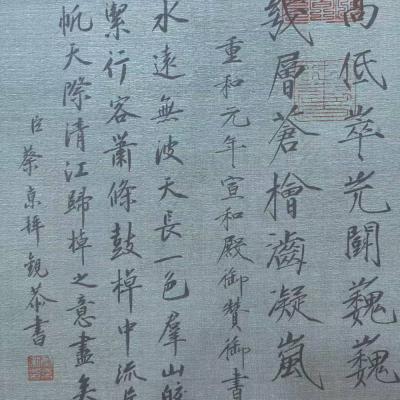 高低萃 巍巍
幾層蒼檜 凝嵐
重和元年宣和殿御贊御書
水遠無波天長一色羣山皎
潔行客蕭條鼓棹中流片
帆天際清江歸棹之意盡矣
臣蔡京拜觀恭書